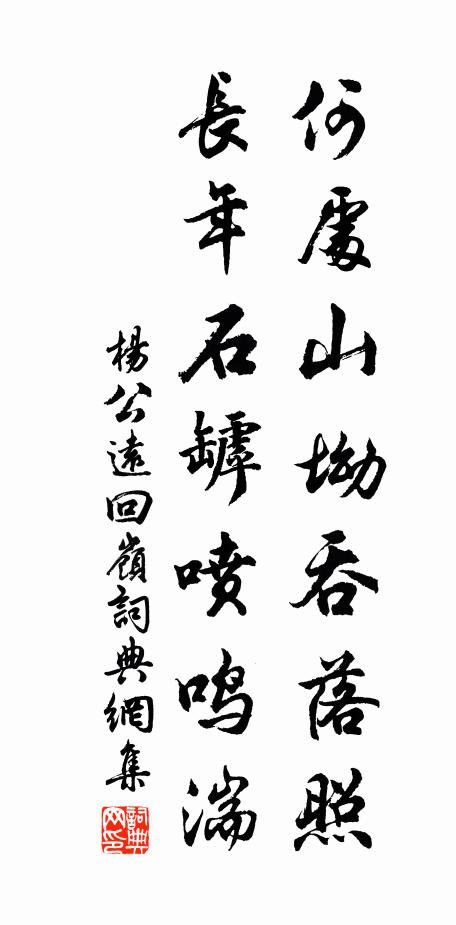 何處山坳吞落照
長年石罅噴鳴湍
楊公遠回嶺詞典網集
詞典网印